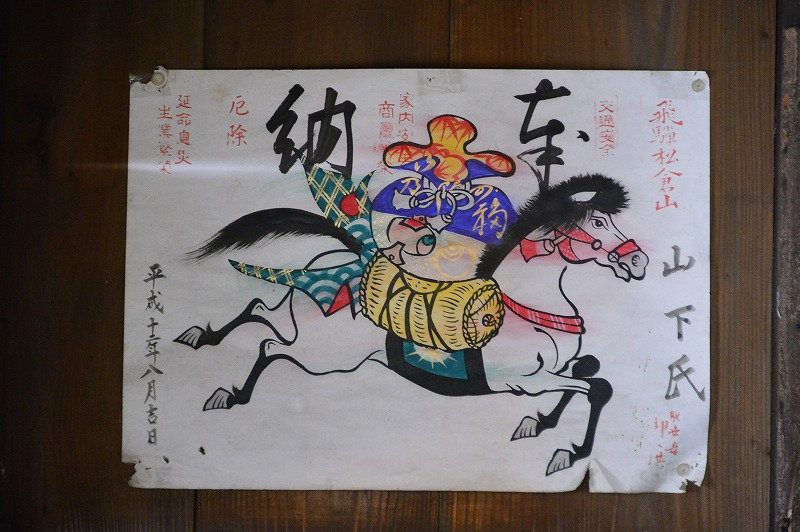 飛騨松倉山
山下氏
交通安全
奉納
家内安
商
の福
厄除
延命息災
生業繁栄
平成十二年八月吉日